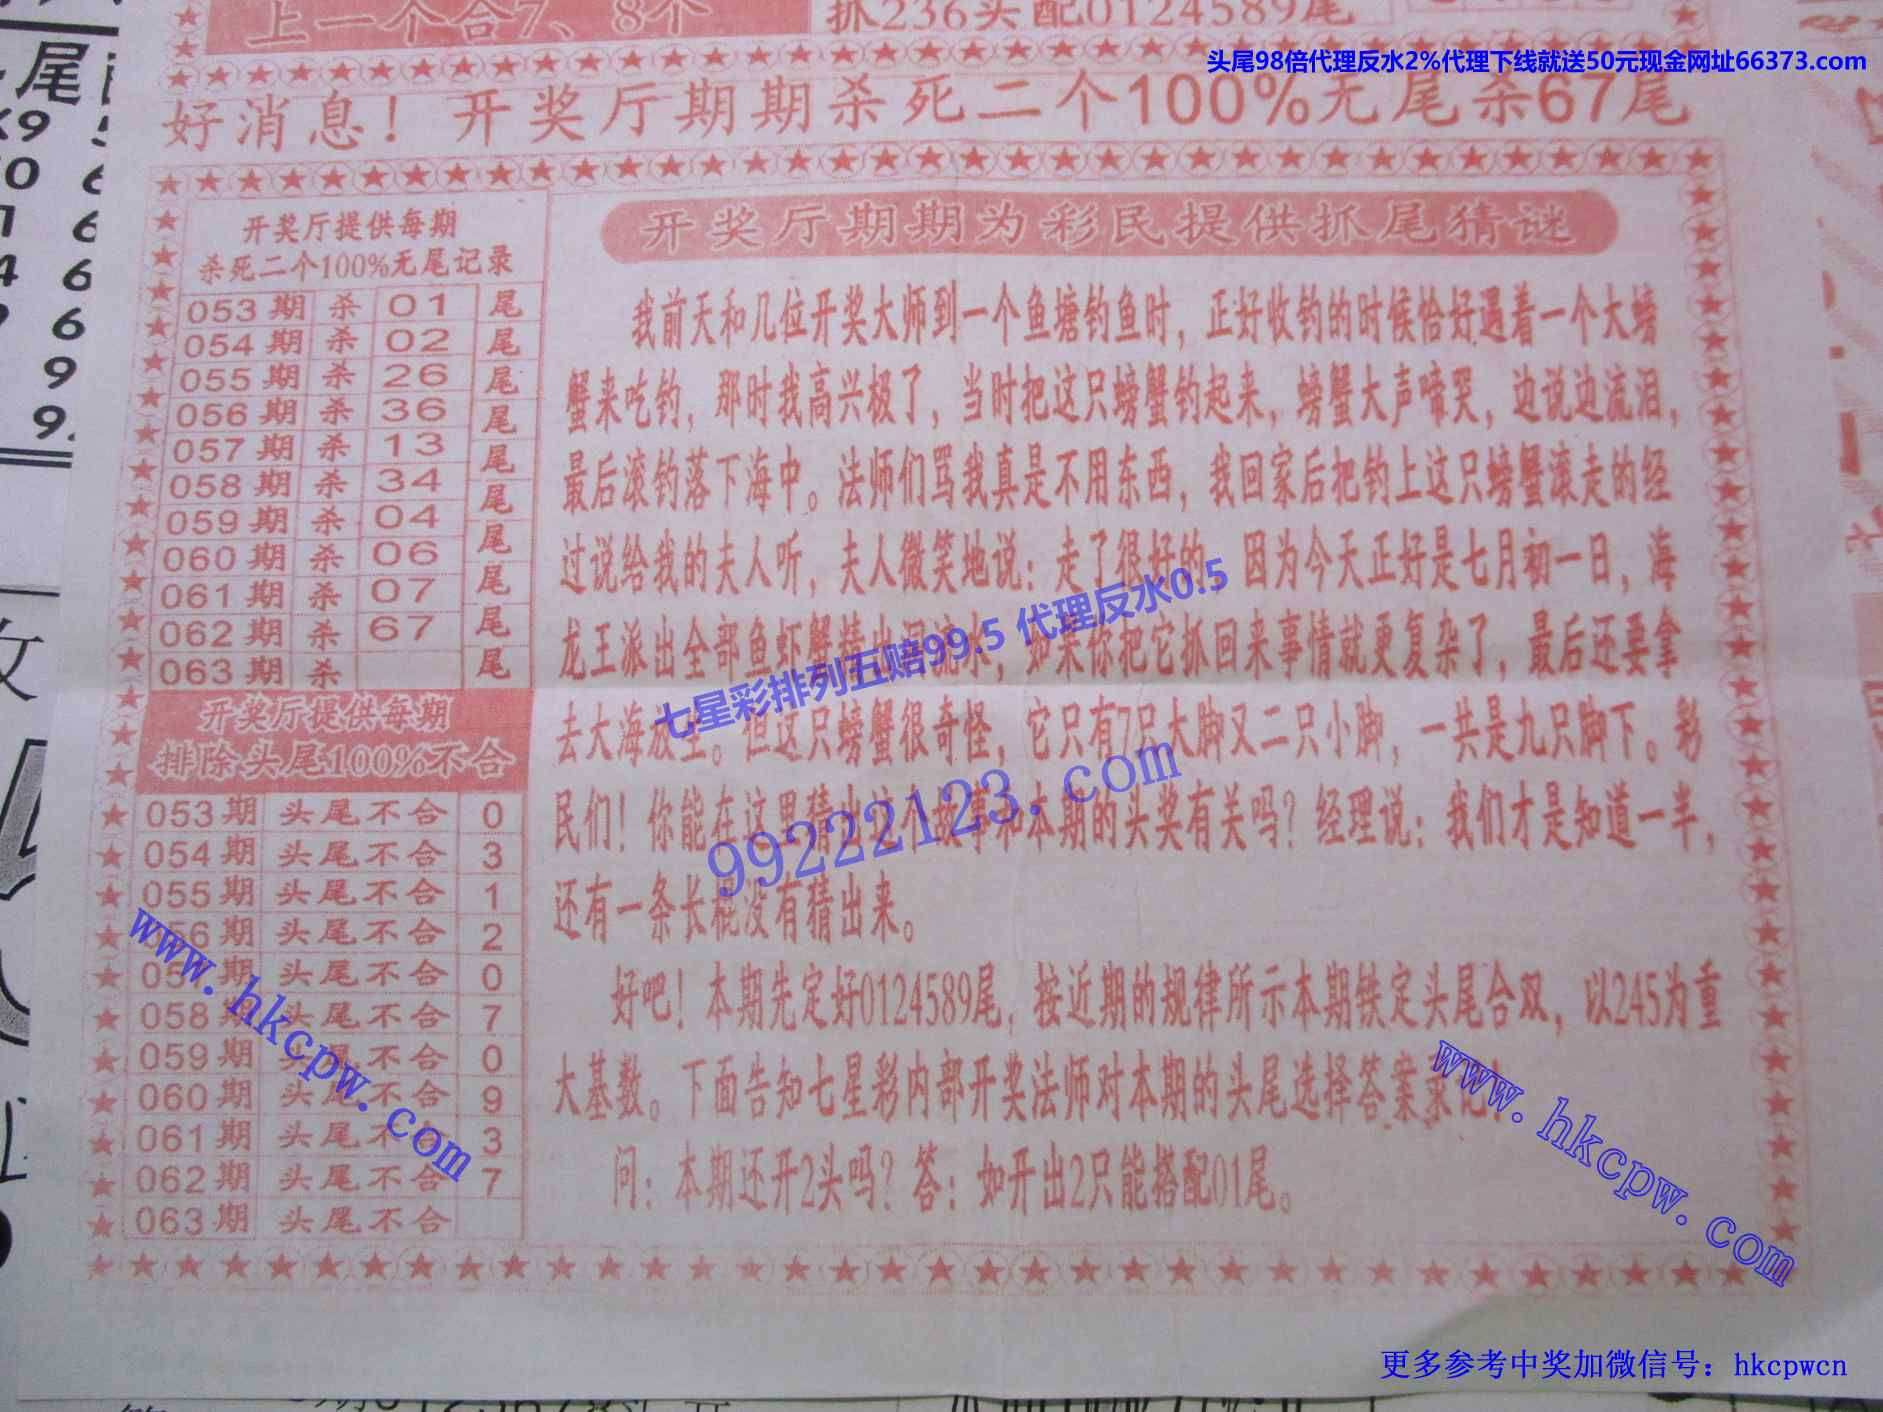 上一个合7、8个
抓236头配0124589尾
头尾98倍代理反水2%代理下线就送50元现金网址66373.com
好消息！开奖厅期期杀死二个100%无尾杀67尾
开奖厅提供每期
杀死二个100%无尾记录
053期 杀 01 尾
054期 杀 02 尾
055期 杀 26 尾
056期 杀 36 尾
057期 杀 13 尾
058期 杀 34 尾
059期 杀 04 尾
060期 杀 06 尾
061期 杀 07 尾
062期 杀 67 尾
063期 杀 尾
开奖厅提供每期
排除头尾100%不合
053期 头尾不合 0
054期 头尾不合 3
055期 头尾不合 1
056期 头尾不合 2
057期 头尾不合 0
058期 头尾不合 7
059期 头尾不合 0
060期 头尾不合 9
061期 头尾不合 3
062期 头尾不合 7
063期 头尾不合
开奖厅期期为彩民提供抓尾猜谜
我前天和几位开奖大师到一个鱼塘钓鱼时，正好收钓的时候恰好遇着一个大螃
蟹来吃钓，那时我高兴极了，当时把这只螃蟹钓起来，螃蟹大声啼哭，边说边流泪，
最后滚钓落下海中。法师们骂我真是不用东西，我回家后把钓上这只螃蟹滚走的经
过说给我的夫人听，夫人微笑地说：走了很好的，因为今天正好是七月初一日，海
龙王派出全部鱼虾蟹精出洞流水，如果你把它抓回来事情就更复杂了，最后还要拿
去大海放生。但这只螃蟹很奇怪，它只有7只大脚又二只小脚，一共是九只脚下。彩
民们！你能在这里猜出这个故事和本期的头奖有关吗？经理说：我们才是知道一半，
还有一条长棍没有猜出来。
好吧！本期先定好0124589尾，按近期的规律所示本期铁定头尾合双，以245为重
大基数。下面告知七星彩内部开奖法师对本期的头尾选择答案录记：
问：本期还开2头吗？答：如开出2只能搭配01尾。
七星彩排列五赔99.5 代理反水0.5
99222123.com
www.hkcpw.com
www.hkcpw.com
更多参考中奖加微信号：hkcpwcn